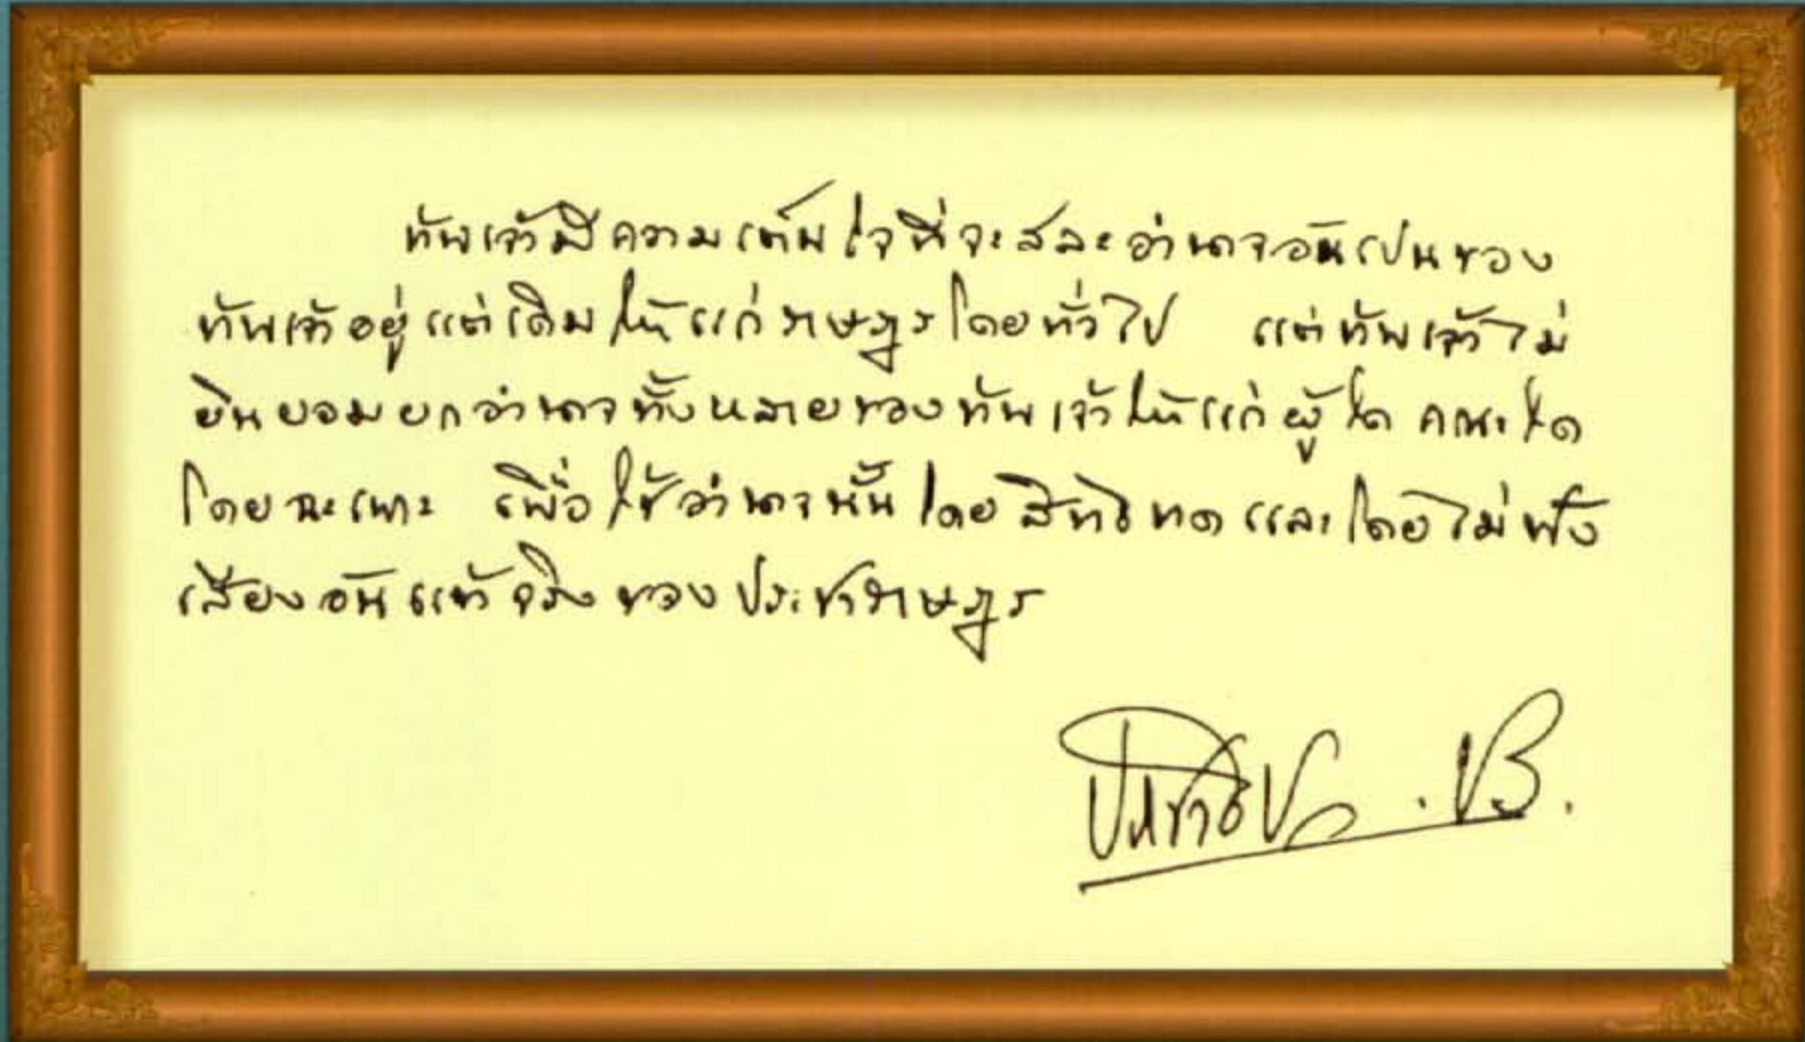 ข้าพเจ้ามีความเต็มใจที่จะสละอำนาจอันเปนของ
ข้าพเจ้าอยู่แต่เดิมให้แก่ราษฎรโดยทั่วไป แต่ข้าพเจ้าไม่
ยินยอมยกอำนาจทั้งหลายของข้าพเจ้าให้แก่ผู้ใด คณะใด
โดยฉะเพาะ เพื่อใช้อำนาจนั้นโดยสิทธิขาดและโดยไม่ฟัง
เสียงอันแท้จริงของประชาราษฎร
ประชาธิปก. ปร.